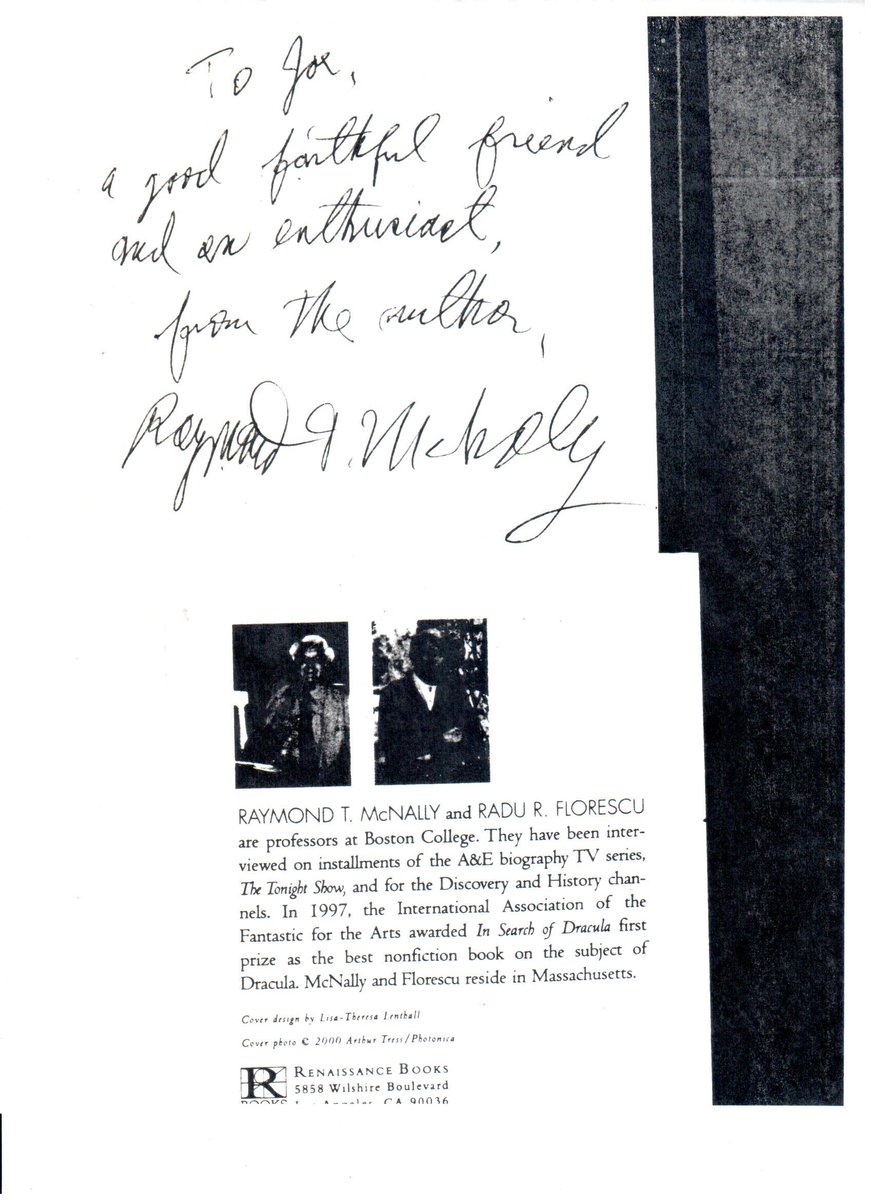 To Joe,
a good faithful friend
and an enthusiast,
from the author,
Raymond T. McNally
RAYMOND T. McNALLY and RADU R. FLORESCU
are professors at Boston College. They have been inter-
viewed on installments of the A&E biography TV series,
The Tonight Show, and for the Discovery and History chan-
nels. In 1997, the International Association of the
Fantastic for the Arts awarded In Search of Dracula first
prize as the best nonfiction book on the subject of
Dracula. McNally and Florescu reside in Massachusetts.
Cover design by Lisa-Theresa Lenthall
Cover photo © 2000 Arthur Tress/Photonica
R
BOOKS
RENAISSANCE BOOKS
5858 Wilshire Boulevard
Los Angeles, CA 90036